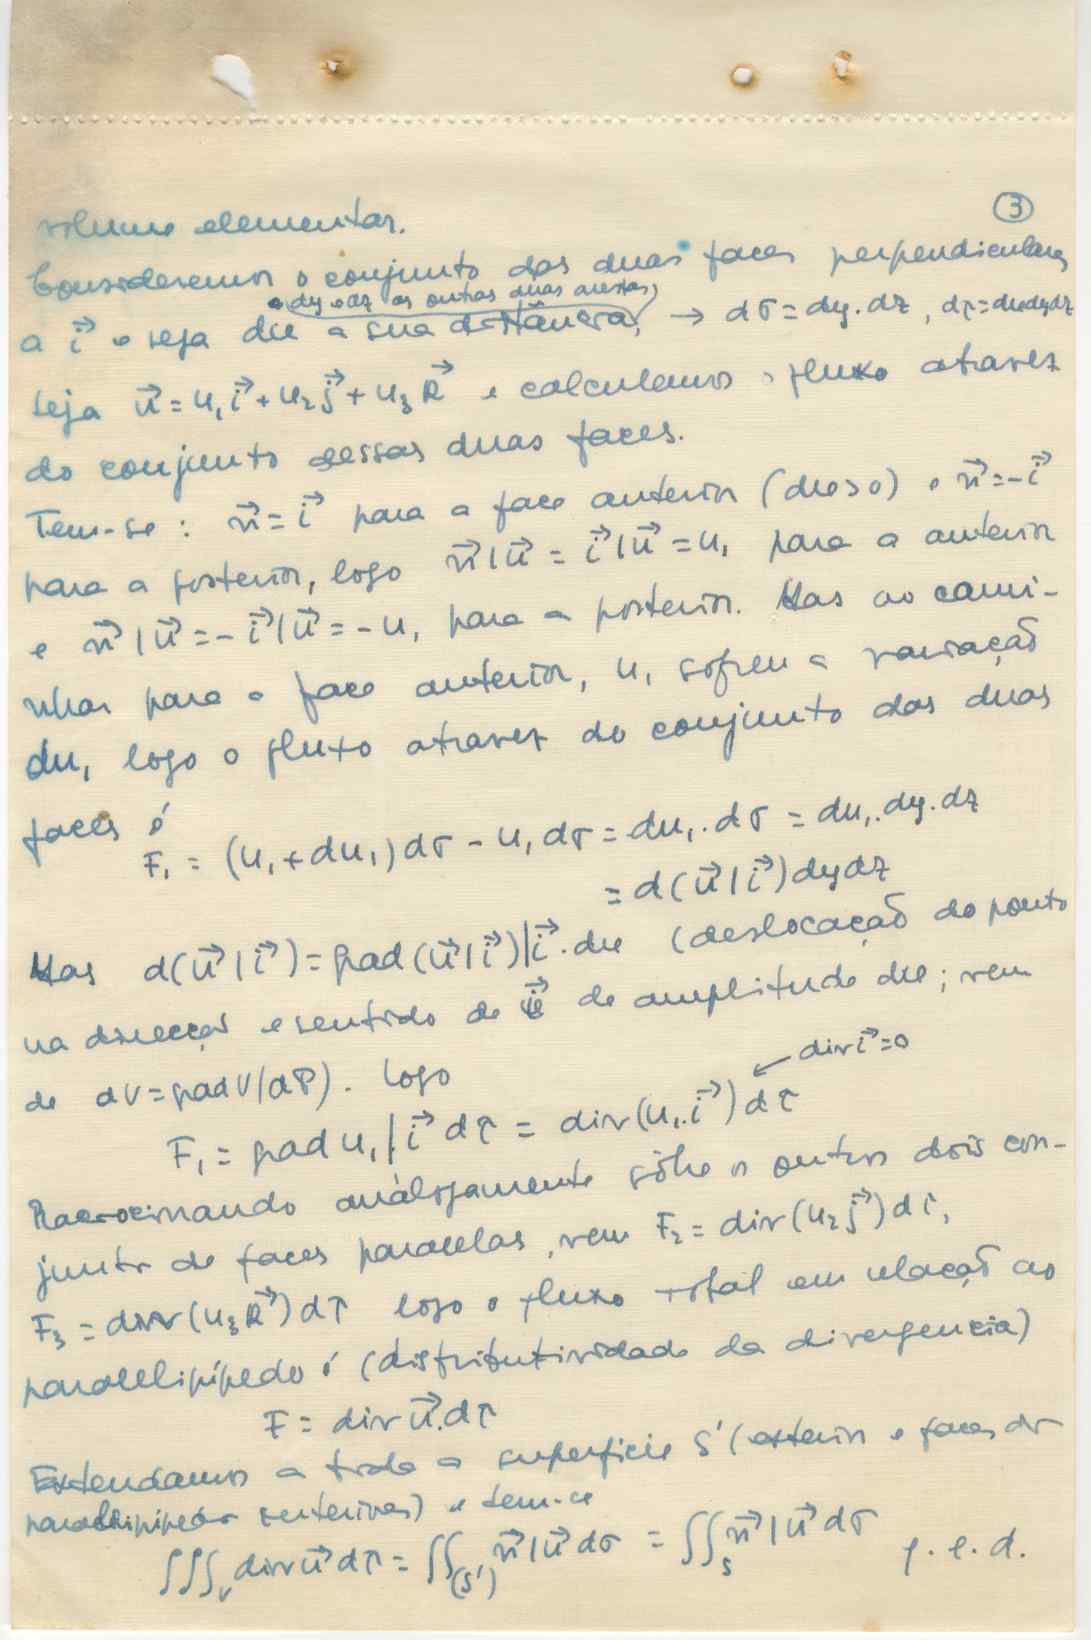 ③
volume elementar.
Consideremos o conjunto das duas faces perpendiculares
e dy e dz as outras duas arestas
a i⃗ e seja dx a sua distância, → dσ = dy.dz , dτ=dxdydz
Seja u⃗ = u₁i⃗ + u₂j⃗ + u₃k⃗ e calculemos o fluxo atravez
do conjunto dessas duas faces.
Tem-se : n⃗ = i⃗ para a face anterior (dx>0) e n⃗=-i⃗
para a posterior, logo n⃗|u⃗ = i⃗|u⃗ = u₁ para a anterior
e n⃗|u⃗ = -i⃗|u⃗ = -u₁ para a posterior. Mas ao cami-
nhar para a face anterior, u₁ sofreu a variação
du₁ logo o fluxo atravez do conjunto das duas
faces é
F₁ = (u₁+du₁)dσ - u₁dσ = du₁.dσ = du₁.dy.dz
= d(u⃗|i⃗)dydz
Mas d(u⃗|i⃗) = grad(u⃗|i⃗)|i⃗.dx (deslocação do ponto
na direcção e sentido de i⃗ de amplitude dx; vem
de dV=gradV|dP). Logo
← div i⃗=0
F₁ = grad u₁|i⃗ dτ = div(u₁.i⃗)dτ
Raciocinando análogamente sôbre os outros dois con-
juntos de faces paralelas, vem F₂ = div(u₂j⃗)dτ,
F₃ = div(u₃k⃗)dτ logo o fluxo total em relação ao
paralelipípedo é (distributividade da divergencia)
F = div u⃗.dτ
Extendamos a toda a superficie S' (exterior e faces dos
paralelipípedos interiores) e tem-se
∫∫∫ᵥ div u⃗ dτ = ∫∫(S') n⃗|u⃗ dσ = ∫∫S n⃗|u⃗ dσ q.e.d.